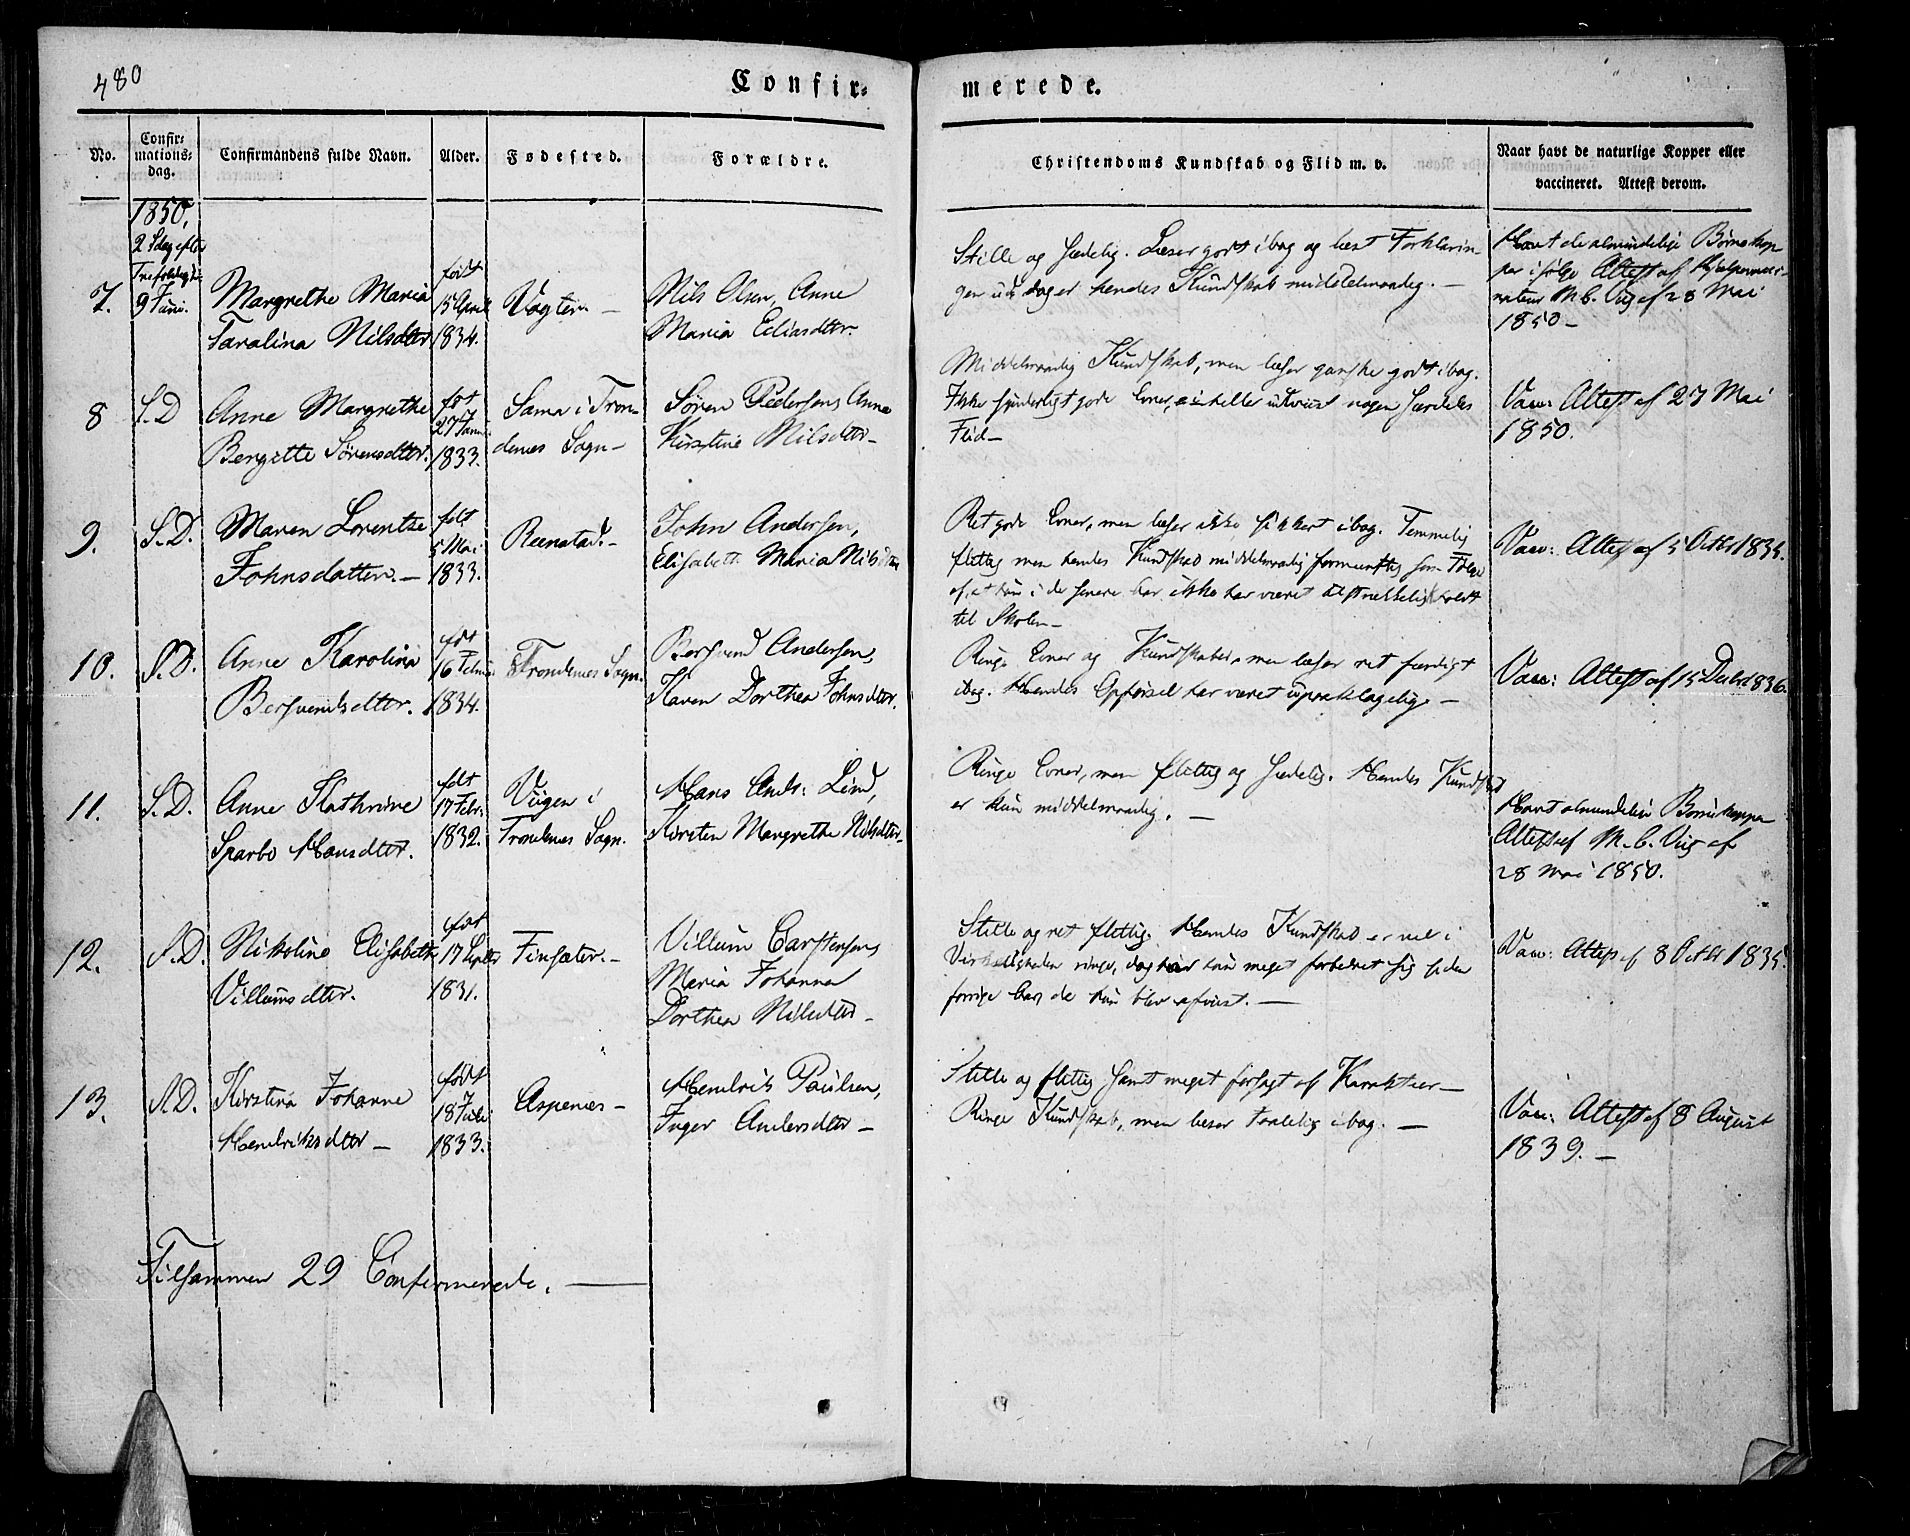 480
Confir-
merede.
No.
Confir-
mations-
dag.
Confirmandens fulde Navn.
Alder.
Fødested.
Forældre.
Christendoms Kundskab og Flid m. v.
Naar havt de naturlige Kopper eller
vaccineret. Attest derom.
1850.
2 Sdag efter
9 Juni.
7.
Margrethe Maria
Taralina Nilsdtr
født
15 April
1834.
Nils Olsen, Anne
Maria Eliasdtr.
Stille og sædelig. Læser godt i bog og læst Forklarin-
gen ud, dog er hendes Kundskab middelmaadig. —
Havt de almindelige Børnekop
per ifølge Attest af
M. C. Vug af 28 Mai
1850 —
8
S. D
Anne Margrethe
Bergitte Sørensdtr.
føt
27 Janu
1833.
Sama i Tron-
denes Sogn —
Søren Pedersen, Anne
Kirstine Nilsdtr —
Middelmaadig Kundskab, men læser ganske godt i bog.
Ikke synderligt gode Evner, ei heller udviist nogen særdeles
Flid —
Vacc: Attest af 27 Mai
1850.
9.
S. D.
Maren Lorentze
Johnsdatter. —
født
5 Mai
1833.
Reenstad. —
John Andersen,
Elisabeth Maria Nilsdtr
Ret gode Evner, men læser ikke sikkert i bog. Temmelig
flittig men hendes Kundskab middelmaadig formeentlig som Følge
af, at hun i de senere Aar ikke har været tilstrækkelig holdt
til Skolen —
Vacc: Attest af 5 Octbr 1835.
10.
S. D.
Anne Karolina
Bersvendsdtr.
føt
16 Febru
1834.
Trondenes Sogn.
Bersvend Andersen,
Karen Dorthea Johnsdtr.
Ringe Evner og Kundskaber, men læser ret færdigt
i bog. Hendes Opførsel har været upaaklagelig. —
Vacc: Attest af 15 Decbr 1836.
11.
S. D.
Anne Kathrine
Sparbo Hansdtr.
født
17 Febr.
1832.
Viigen i
Trondenes Sogn.
Hans Andr: Lind,
Kirsten Margrethe Nilsdtr —
Ringe Evner, men flittig og sædelig. Hendes Kundskab
er kun middelmaadig. —
Havt almindelige Børnekopper
Attest af M. C. Vug af
28 Mai 1850.
12.
S. D.
Nikoline Elisabeth
Villumsdtr.
føt
17 Septbr
1831.
Finsæter. —
Villum Carstensen,
Maria Johanna
Dorthea Nilsdtr —
Stille og ret flittig. Hendes Kundskab er vel i
Virkeligheden ringe, dog har hun meget forbedret sig siden
forrige Aar, da hun blev afviist. —
Vacc: Attest af 8 Octbr 1835.
13.
S. D.
Kirstina Johanne
Hendriksdtr —
født
18 Juli
1833.
Aspenæs —
Hendrik Paulsen,
Inger Andersdtr —
Stille og flittig samt meget forsagt af Karakteer —
Ringe Kundskab, men læser taalelig i bog. —
Vacc: Attest af 8 August
1839. —
Tilsammen 29 Confirmerede. —